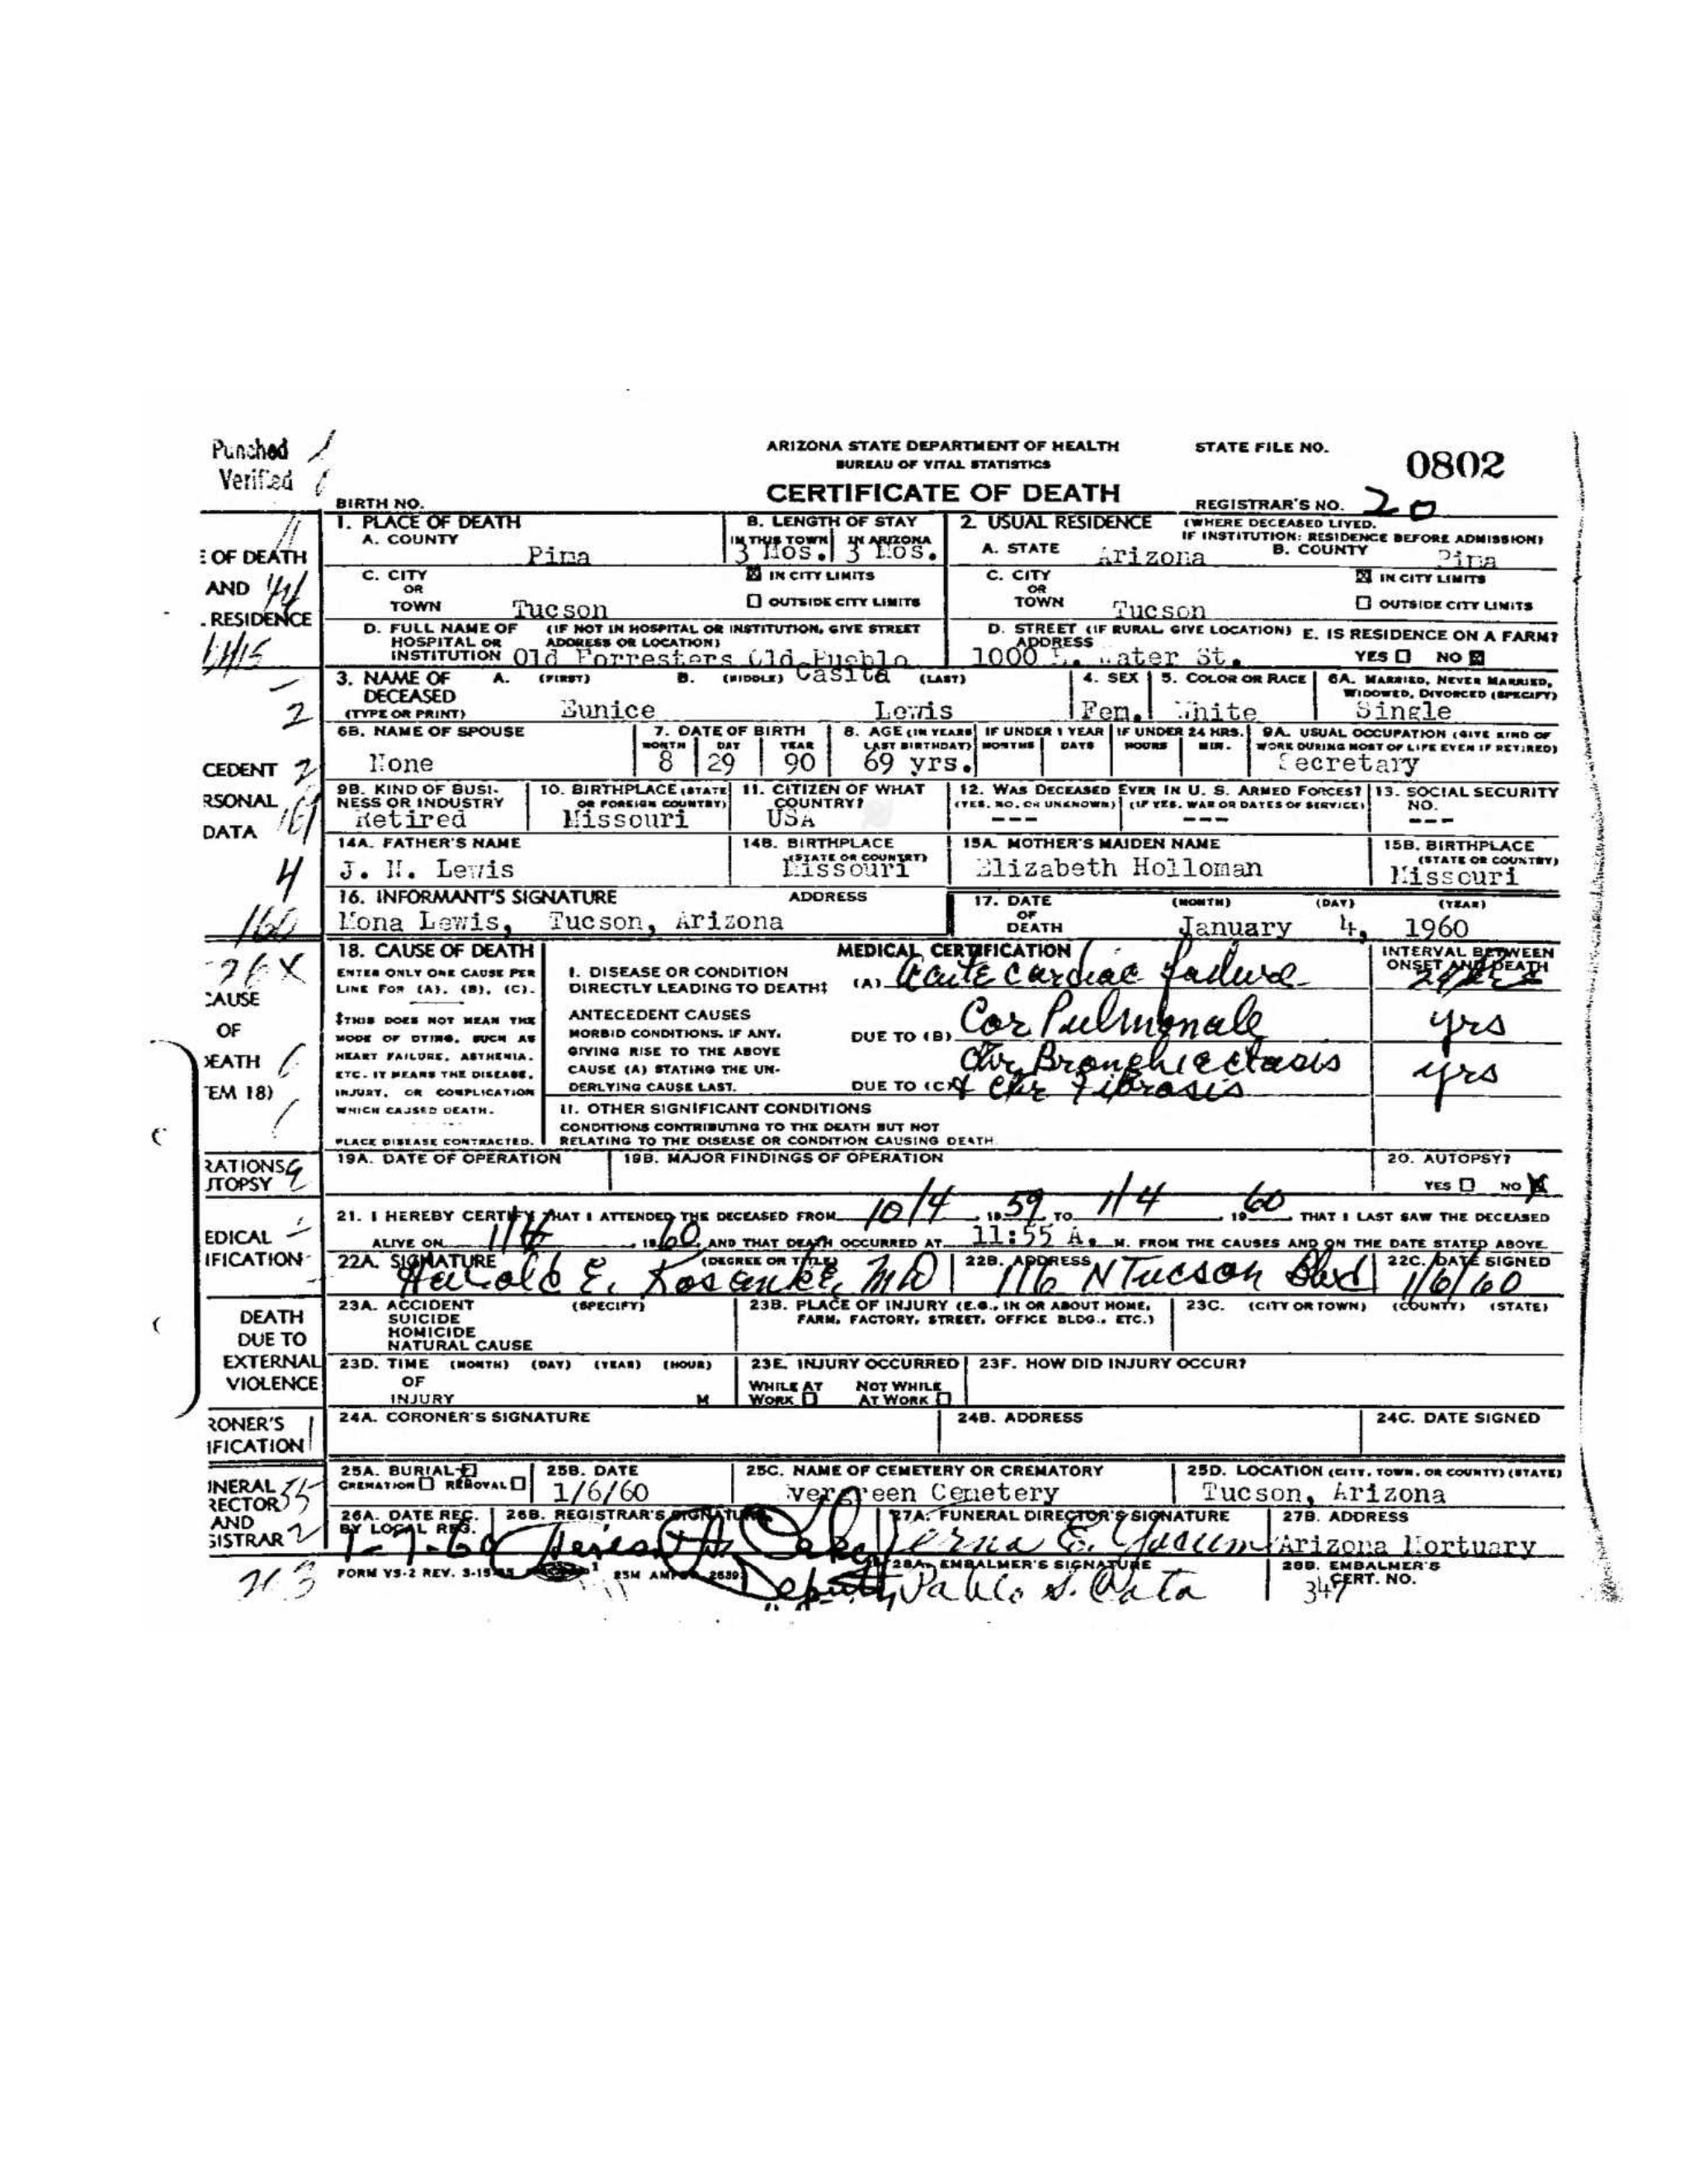 Punched
Verified
ARIZONA STATE DEPARTMENT OF HEALTH
BUREAU OF VITAL STATISTICS
CERTIFICATE OF DEATH
STATE FILE NO. 0802
REGISTRAR'S NO. 20
BIRTH NO.
1. PLACE OF DEATH
A. COUNTY Pima
B. LENGTH OF STAY
IN THIS TOWN 3 Mos. IN ARIZONA 3 Mos.
2. USUAL RESIDENCE (WHERE DECEASED LIVED. IF INSTITUTION: RESIDENCE BEFORE ADMISSION)
A. STATE Arizona B. COUNTY Pima
C. CITY OR TOWN Tucson
☒ IN CITY LIMITS
☐ OUTSIDE CITY LIMITS
C. CITY OR TOWN Tucson
☒ IN CITY LIMITS
☐ OUTSIDE CITY LIMITS
D. FULL NAME OF HOSPITAL OR INSTITUTION (IF NOT IN HOSPITAL OR INSTITUTION, GIVE STREET ADDRESS OR LOCATION)
Old Forresters Old Pueblo Casita
D. STREET ADDRESS (IF RURAL GIVE LOCATION)
1000 St.
E. IS RESIDENCE ON A FARM?
YES ☐ NO ☒
3. NAME OF DECEASED (TYPE OR PRINT) A. (FIRST) B. (MIDDLE) (LAST)
Eunice Lewis
4. SEX Fem.
5. COLOR OR RACE White
6A. MARRIED, NEVER MARRIED, WIDOWED, DIVORCED (SPECIFY) Single
6B. NAME OF SPOUSE None
7. DATE OF BIRTH MONTH DAY YEAR
8 29 90
8. AGE (IN YEARS LAST BIRTHDAY) 69 yrs.
IF UNDER 1 YEAR MONTHS DAYS
IF UNDER 24 HRS. HOURS MIN.
9A. USUAL OCCUPATION (GIVE KIND OF WORK DURING MOST OF LIFE EVEN IF RETIRED) Secretary
9B. KIND OF BUSINESS OR INDUSTRY Retired
10. BIRTHPLACE (STATE OR FOREIGN COUNTRY) Missouri
11. CITIZEN OF WHAT COUNTRY? USA
12. WAS DECEASED EVER IN U. S. ARMED FORCES? (YES, NO, OR UNKNOWN) (IF YES, WAR OR DATES OF SERVICE)
--- ---
13. SOCIAL SECURITY NO. ---
14A. FATHER'S NAME J. Lewis
14B. BIRTHPLACE (STATE OR COUNTRY) Missouri
15A. MOTHER'S MAIDEN NAME Elizabeth Holloman
15B. BIRTHPLACE (STATE OR COUNTRY) Missouri
16. INFORMANT'S SIGNATURE ADDRESS
Mona Lewis, Tucson, Arizona
17. DATE OF DEATH (MONTH) (DAY) (YEAR)
January 4, 1960
18. CAUSE OF DEATH
ENTER ONLY ONE CAUSE PER LINE FOR (A), (B), (C).
‡THIS DOES NOT MEAN THE MODE OF DYING, SUCH AS HEART FAILURE, ASTHENIA, ETC. IT MEANS THE DISEASE, INJURY, OR COMPLICATION WHICH CAUSED DEATH.
PLACE DISEASE CONTRACTED.
MEDICAL CERTIFICATION
INTERVAL BETWEEN ONSET AND DEATH
I. DISEASE OR CONDITION DIRECTLY LEADING TO DEATH‡
(A) Acute Cardiac failure
ANTECEDENT CAUSES
MORBID CONDITIONS, IF ANY, GIVING RISE TO THE ABOVE CAUSE (A) STATING THE UNDERLYING CAUSE LAST.
DUE TO (B) Cor Pulmonale yrs
DUE TO (C) Chr Bronchiectasis yrs
& Chr Fibrosis
II. OTHER SIGNIFICANT CONDITIONS
CONDITIONS CONTRIBUTING TO THE DEATH BUT NOT RELATING TO THE DISEASE OR CONDITION CAUSING DEATH.
19A. DATE OF OPERATION
19B. MAJOR FINDINGS OF OPERATION
20. AUTOPSY?
YES ☐ NO ☒
21. I HEREBY CERTIFY THAT I ATTENDED THE DECEASED FROM 10/4, 1959 TO 1/4, 1960 THAT I LAST SAW THE DECEASED
ALIVE ON 1/4, 1960, AND THAT DEATH OCCURRED AT 11:55 A. M. FROM THE CAUSES AND ON THE DATE STATED ABOVE.
22A. SIGNATURE (DEGREE OR TITLE) Harold E. Kosanke, MD
22B. ADDRESS 116 N Tucson Blvd
22C. DATE SIGNED 1/6/60
23A. ACCIDENT SUICIDE HOMICIDE NATURAL CAUSE (SPECIFY)
23B. PLACE OF INJURY (E.G., IN OR ABOUT HOME, FARM, FACTORY, STREET, OFFICE BLDG., ETC.)
23C. (CITY OR TOWN) (COUNTY) (STATE)
23D. TIME OF INJURY (MONTH) (DAY) (YEAR) (HOUR) M
23E. INJURY OCCURRED
WHILE AT WORK ☐ NOT WHILE AT WORK ☐
23F. HOW DID INJURY OCCUR?
24A. CORONER'S SIGNATURE
24B. ADDRESS
24C. DATE SIGNED
25A. BURIAL CREMATION ☐ REMOVAL ☐
25B. DATE 1/6/60
25C. NAME OF CEMETERY OR CREMATORY
Cemetery
25D. LOCATION (CITY, TOWN, OR COUNTY) (STATE)
Tucson, Arizona
26A. DATE REC. BY LOCAL REG. 1-7-60
26B. REGISTRAR'S SIGNATURE
Deputy
27A. FUNERAL DIRECTOR'S SIGNATURE
27B. ADDRESS Arizona Mortuary
28A. EMBALMER'S SIGNATURE
28B. EMBALMER'S CERT. NO. 347
FORM VS-2 REV.
E OF DEATH
AND
RESIDENCE
CEDENT
RSONAL
DATA
CAUSE
OF
DEATH
EM 18)
RATIONS
UTOPSY
EDICAL
IFICATION
DEATH
DUE TO
EXTERNAL
VIOLENCE
RONER'S
IFICATION
UNERAL
RECTOR
AND
GISTRAR
263